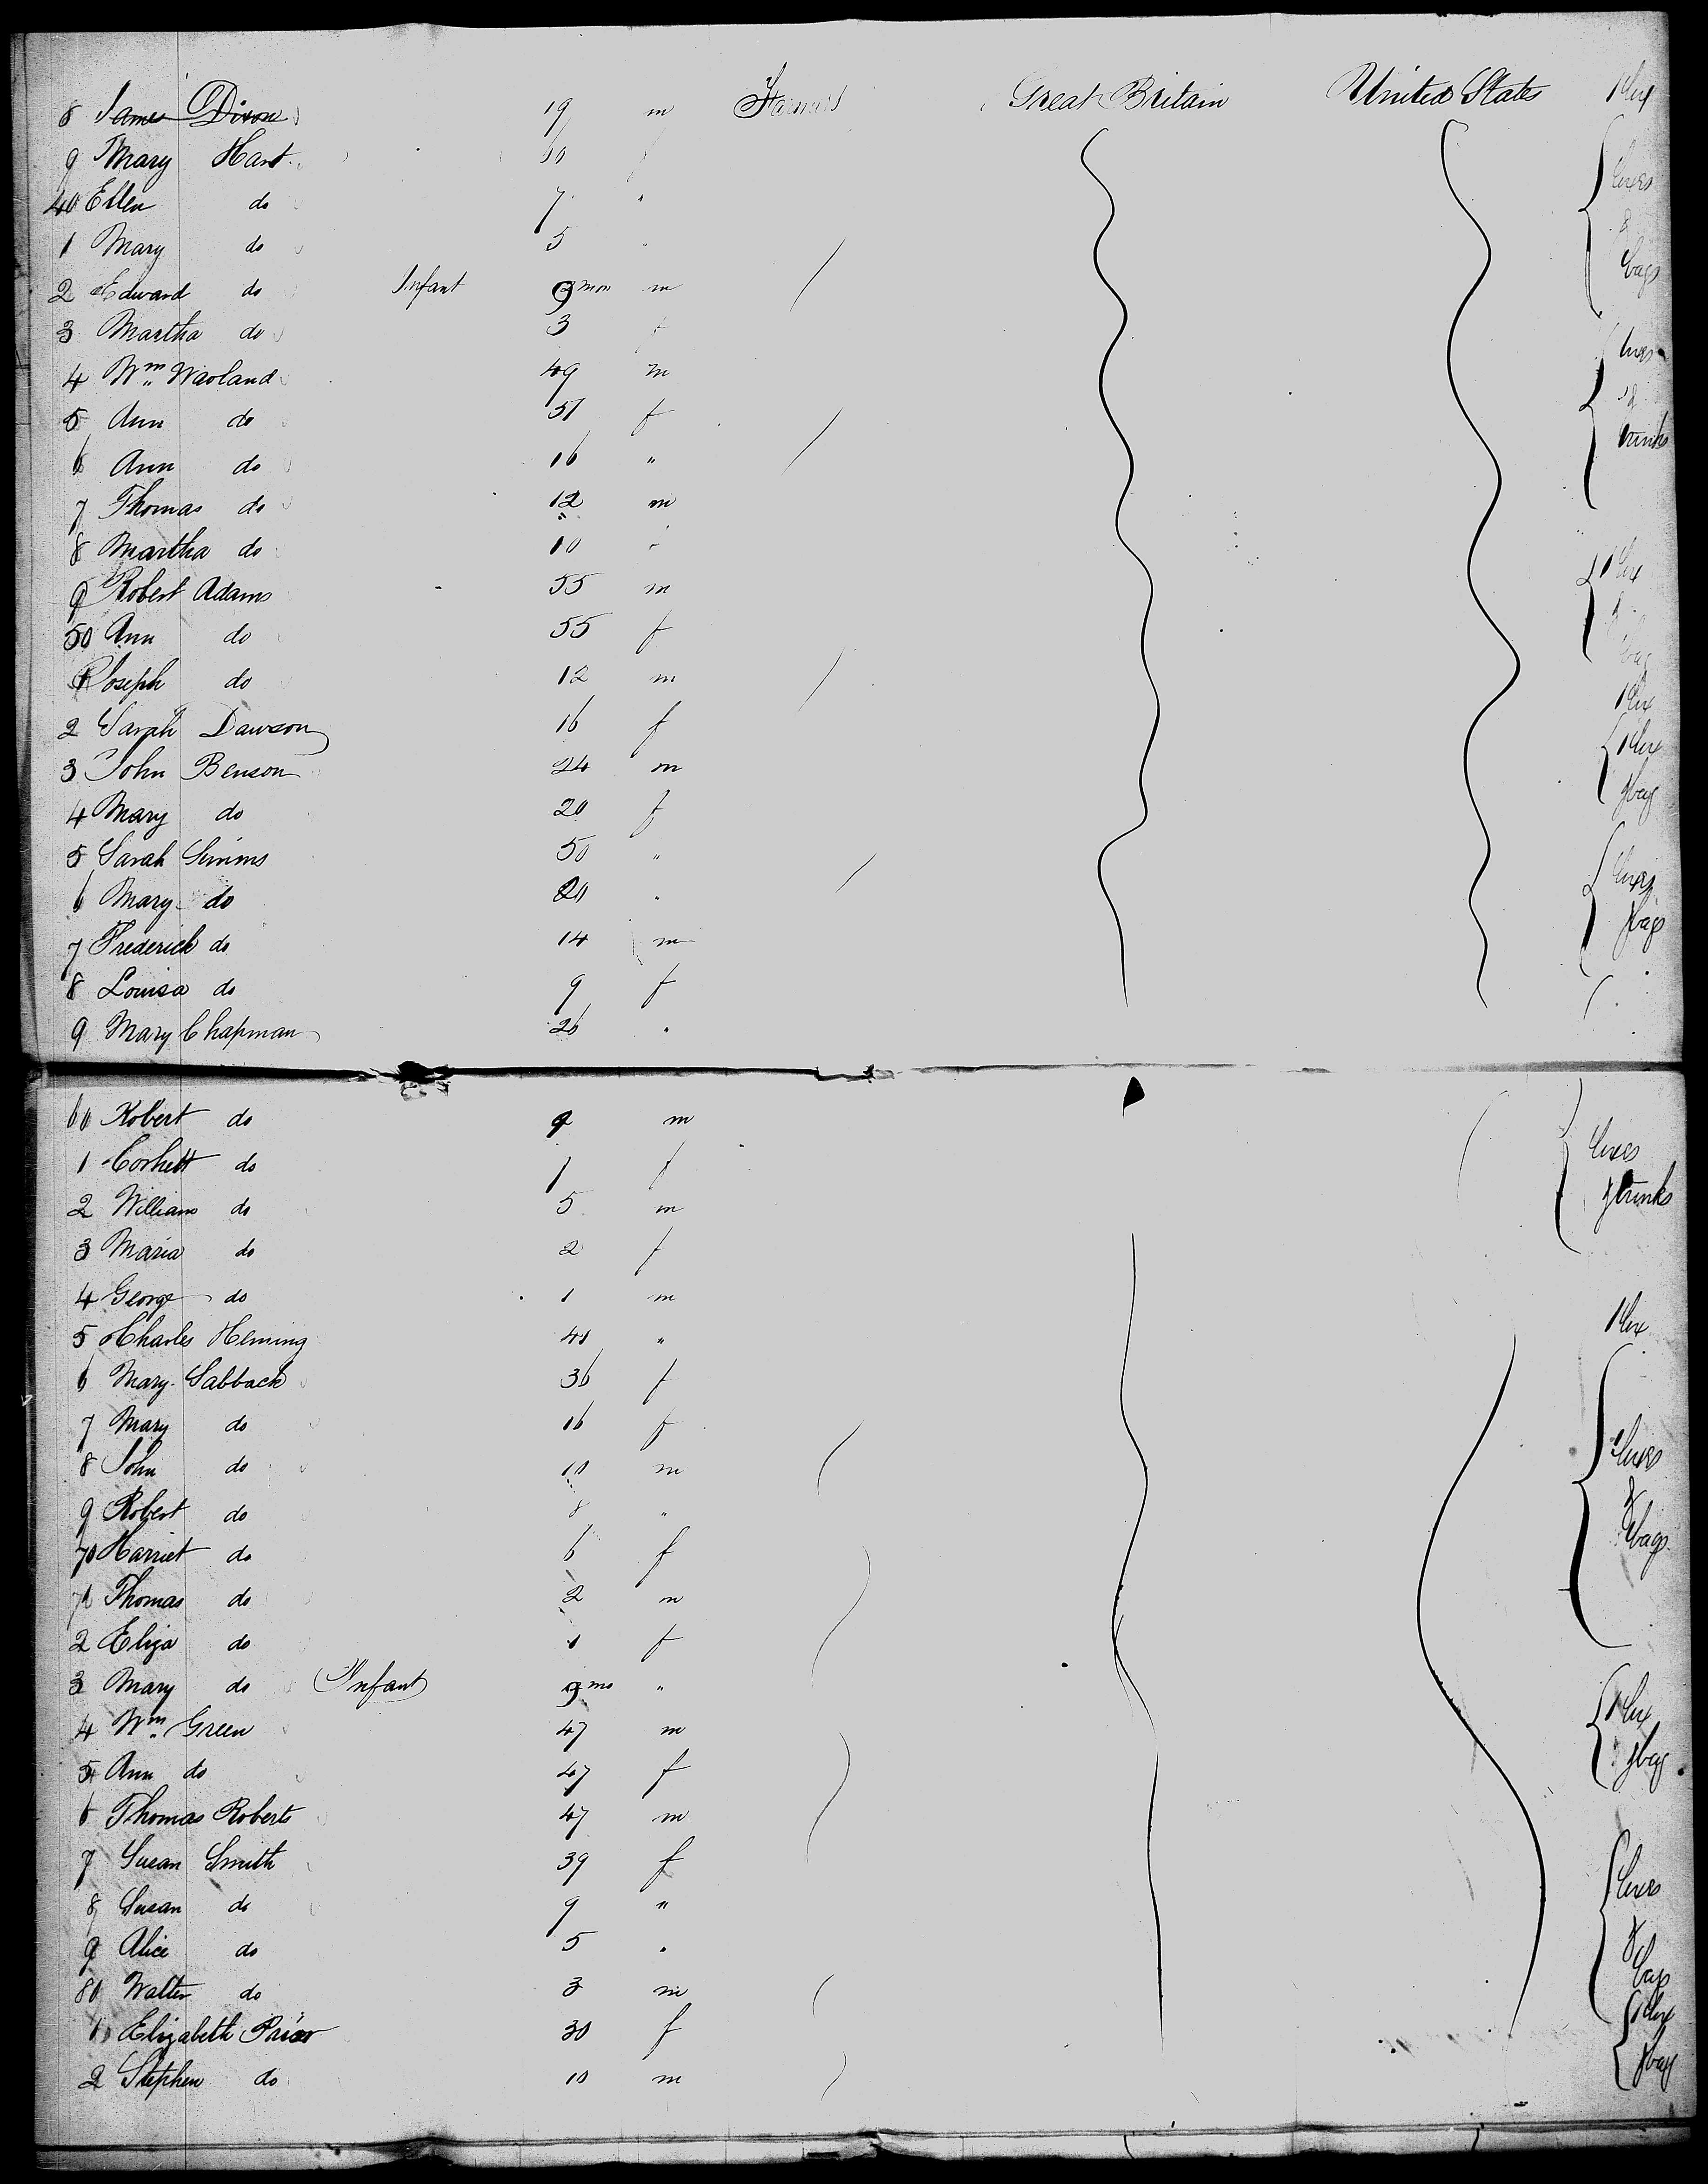 8 James Dixon 19 m Great Britain United States 1 box
9 Mary Hart
40 Ellen do 7 "
1 Mary do 5 "
2 Edward do Infant 9 mon m
3 Martha do 3 f
4 Wm Waoland 49 m
5 Ann do 51 f
6 Ann do 16 "
7 Thomas do 12 m
8 Martha do 10
9 Robert Adams 55 m
50 Ann do 55 f
1 Joseph do 12 m
2 Sarah Dawson 16 f 1 box
3 John Benson 24 m 1 box
4 Mary do 20 f & bag
5 Sarah Simms 50 "
6 Mary do 20 " boxes
7 Frederick do 14 m & bags
8 Louisa do 9 f
9 Mary Chapman 26 "
60 Robert do 9 m
1 do 7 f boxes
2 William do 5 m & trunks
3 Maria do 2 f
4 George do 1 m
5 Charles Heming 40 " 1 box
6 Mary Sabback 36 f
7 Mary do 16 f
8 John do 10 m boxes
9 Robert do 8 " &
70 Harriet do 6 f bags
71 Thomas do 2 m
2 Eliza do 1 f
3 Mary do Infant 9 mo "
4 Wm Green 47 m 1 box
5 Ann do 47 f & bag
6 Thomas Roberts 47 m
7 Susan Smith 39 f
8 Susan do 9 " boxes
9 Alice do 5 " &
80 Walter do 3 m bags
1 Elizabeth Prior 30 f 1 box
2 Stephen do 10 m & bag